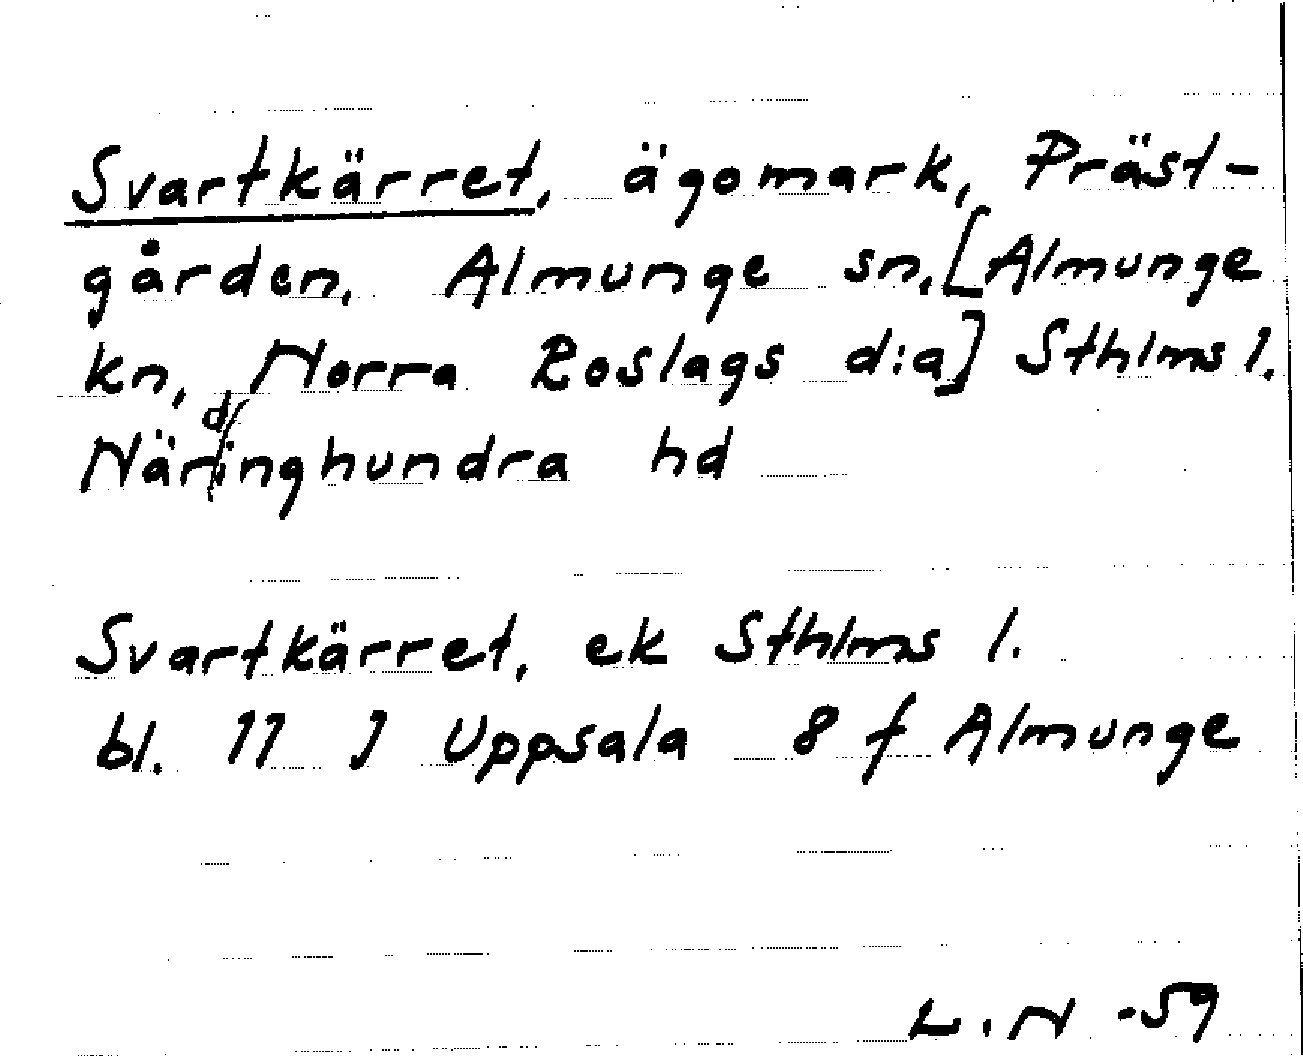 Svartkärret, ägomark, Präst-
gården. Almunge sn. [Almunge
kn, Norra Roslags d:a] Sthlms l.
Närdinghundra hd
Svartkärret, ek Sthlms l.
bl. 11 J Uppsala 8 f Almunge
L.N -59